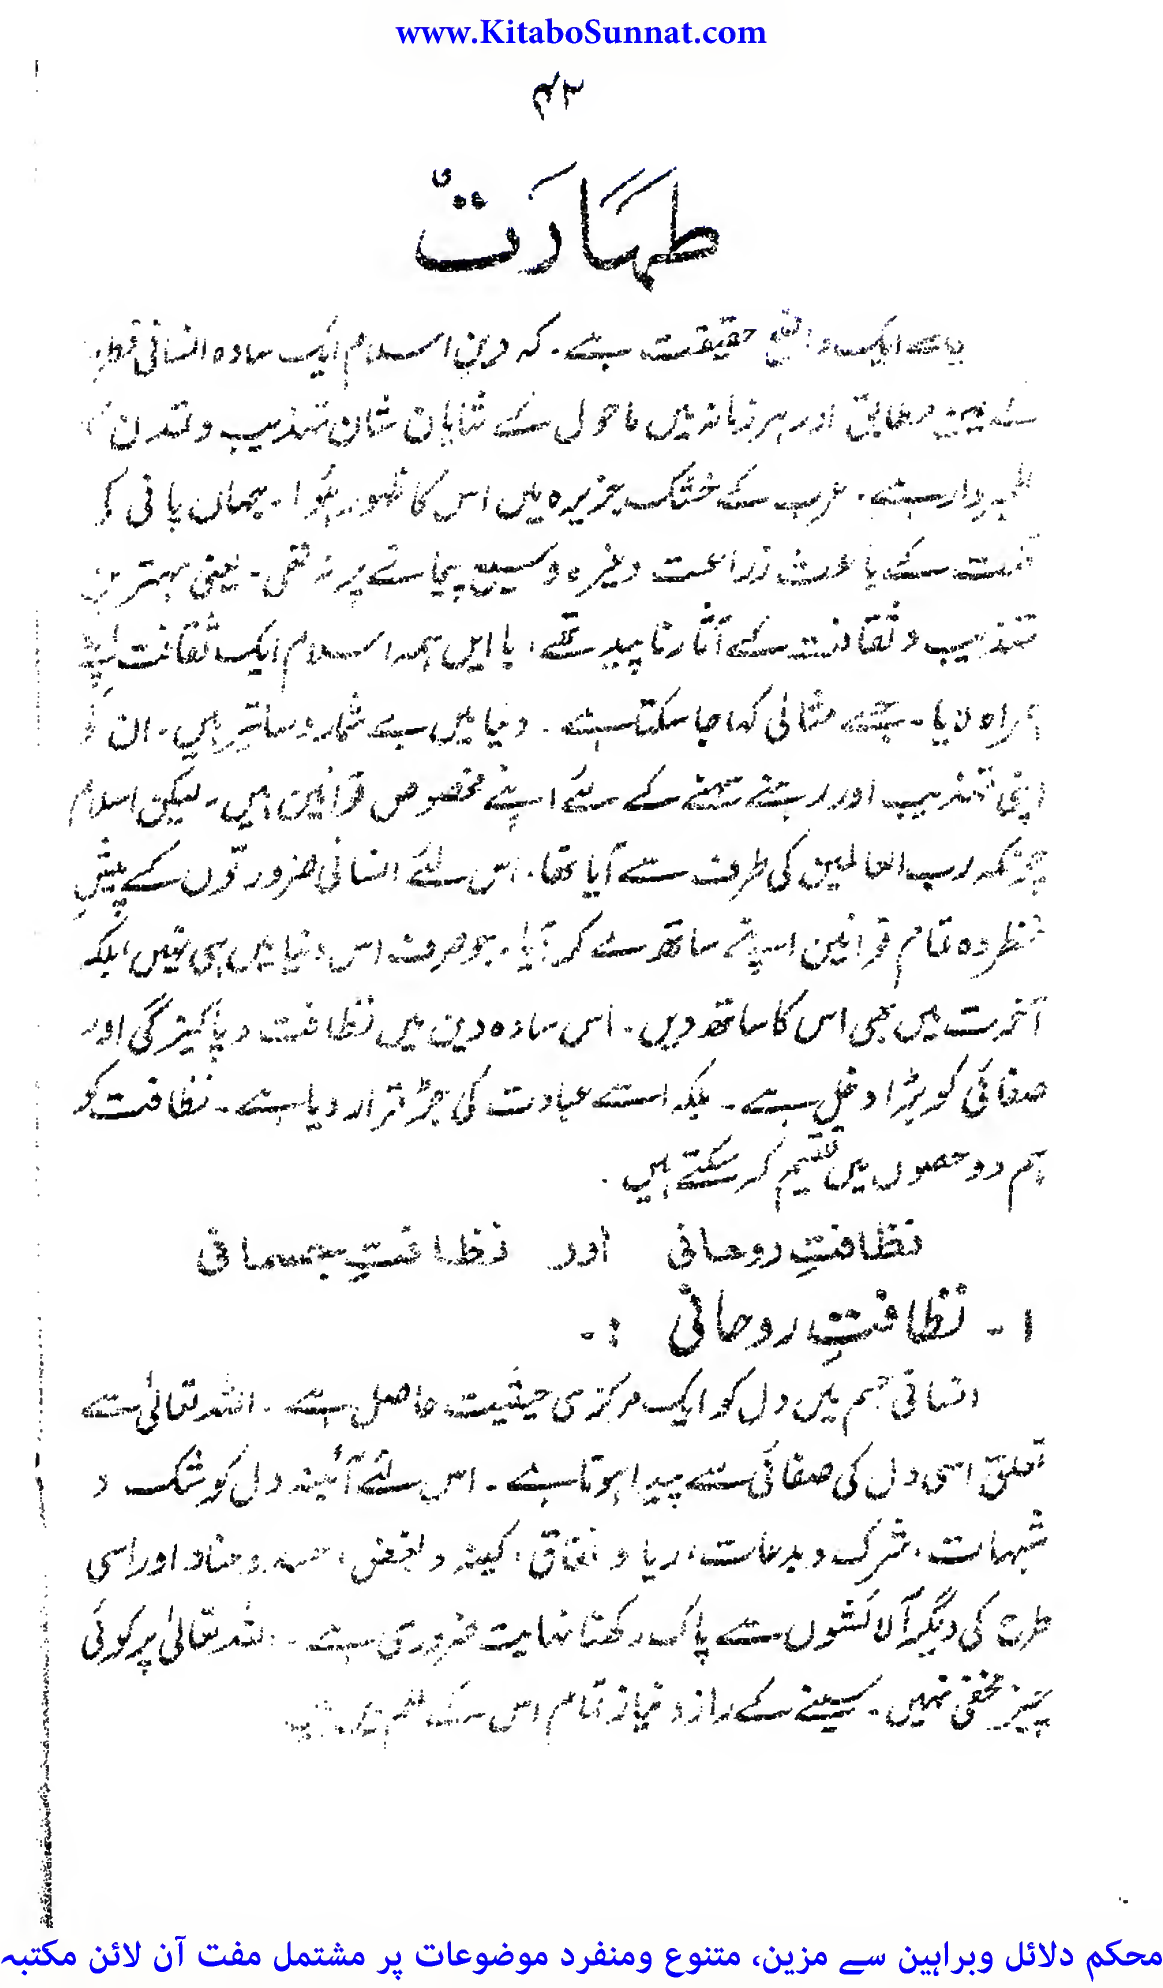 www.KitaboSunnat.com
۴۲
طَہَارَتْ
یہ ایک واقعی حقیقت ہے۔ کہ دین اسلام ایک سادہ انسانی فطرت
کے عین مطابق اور ہر زمانہ میں ماحول کے شایان شان تہذیب و تمدن کا
علمبردار ہے۔ عرب کے خشک جزیرہ میں اس کا ظہور ہؤا۔ جہاں پانی کی
قلت کے باعث زراعت وغیرہ وسیع پیمانے پر نہ تھی۔ یعنی بہترین
تہذیب و ثقافت کے آثار ناپید تھے، باایں ہمہ اسلام ایک ثقافت اپنے
ہمراہ لایا۔ جسے مثالی کہا جا سکتا ہے۔ دنیا میں بے شمار دساتیر ہیں۔ ان کے
اپنی تہذیب اور رہنے سہنے کے لئے اپنے مخصوص قوانین ہیں۔ لیکن اسلام
چونکہ رب العالمین کی طرف سے آیا تھا۔ اس لئے انسانی ضرورتوں کے پیشِ
نظر وہ تمام قوانین اپنے ساتھ لے کر آیا۔ جو صرف اس دنیا میں ہی نہیں بلکہ
آخرت میں بھی اس کا ساتھ دیں۔ اس سادہ دین میں نظافت و پاکیزگی اور
صفائی کو بڑا دخل ہے۔ بلکہ اسے عبادت کی جڑ قرار دیا ہے۔ نظافت کو
ہم دو حصوں میں تقسیم کر سکتے ہیں۔
نظافتِ روحانی اور نظافتِ جسمانی
۱۔ نظافتِ روحانی :۔
انسانی جسم میں دل کو ایک مرکزی حیثیت حاصل ہے۔ اللہ تعالیٰ سے
تعلق اسی دل کی صفائی سے پیدا ہوتا ہے۔ اس لئے آئینہ دل کو شک و
شبہات، شرک و بدعات، ریا و نفاق، کینہ و بغض، حسد و عناد اور اسی
طرح کی دیگر آلائشوں سے پاک رکھنا نہایت ضروری ہے۔ اللہ تعالیٰ پر کوئی
چیز مخفی نہیں۔ سینے کے راز و نیاز تمام اس کے علم میں
محکم دلائل وبراہین سے مزین، متنوع ومنفرد موضوعات پر مشتمل مفت آن لائن مکتبہ